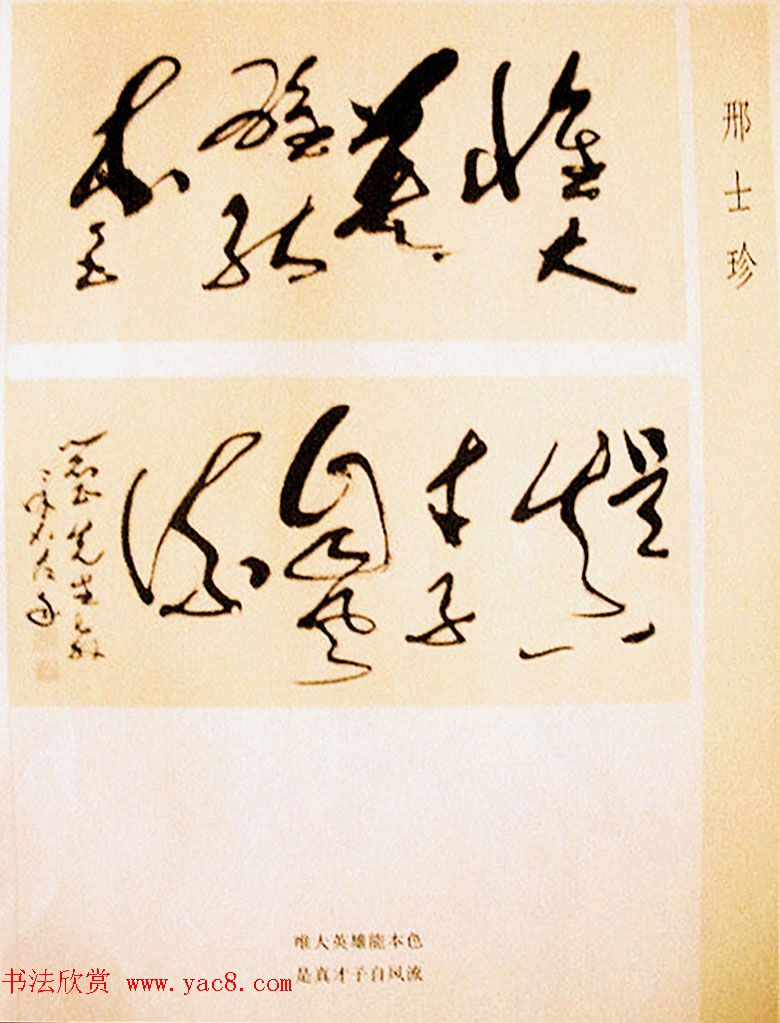 邢士珍
惟大
英
雄能
本色
是真
才子
自风
流
先生
唯大英雄能本色
是真才子自风流
书法欣赏 www.yac8.com